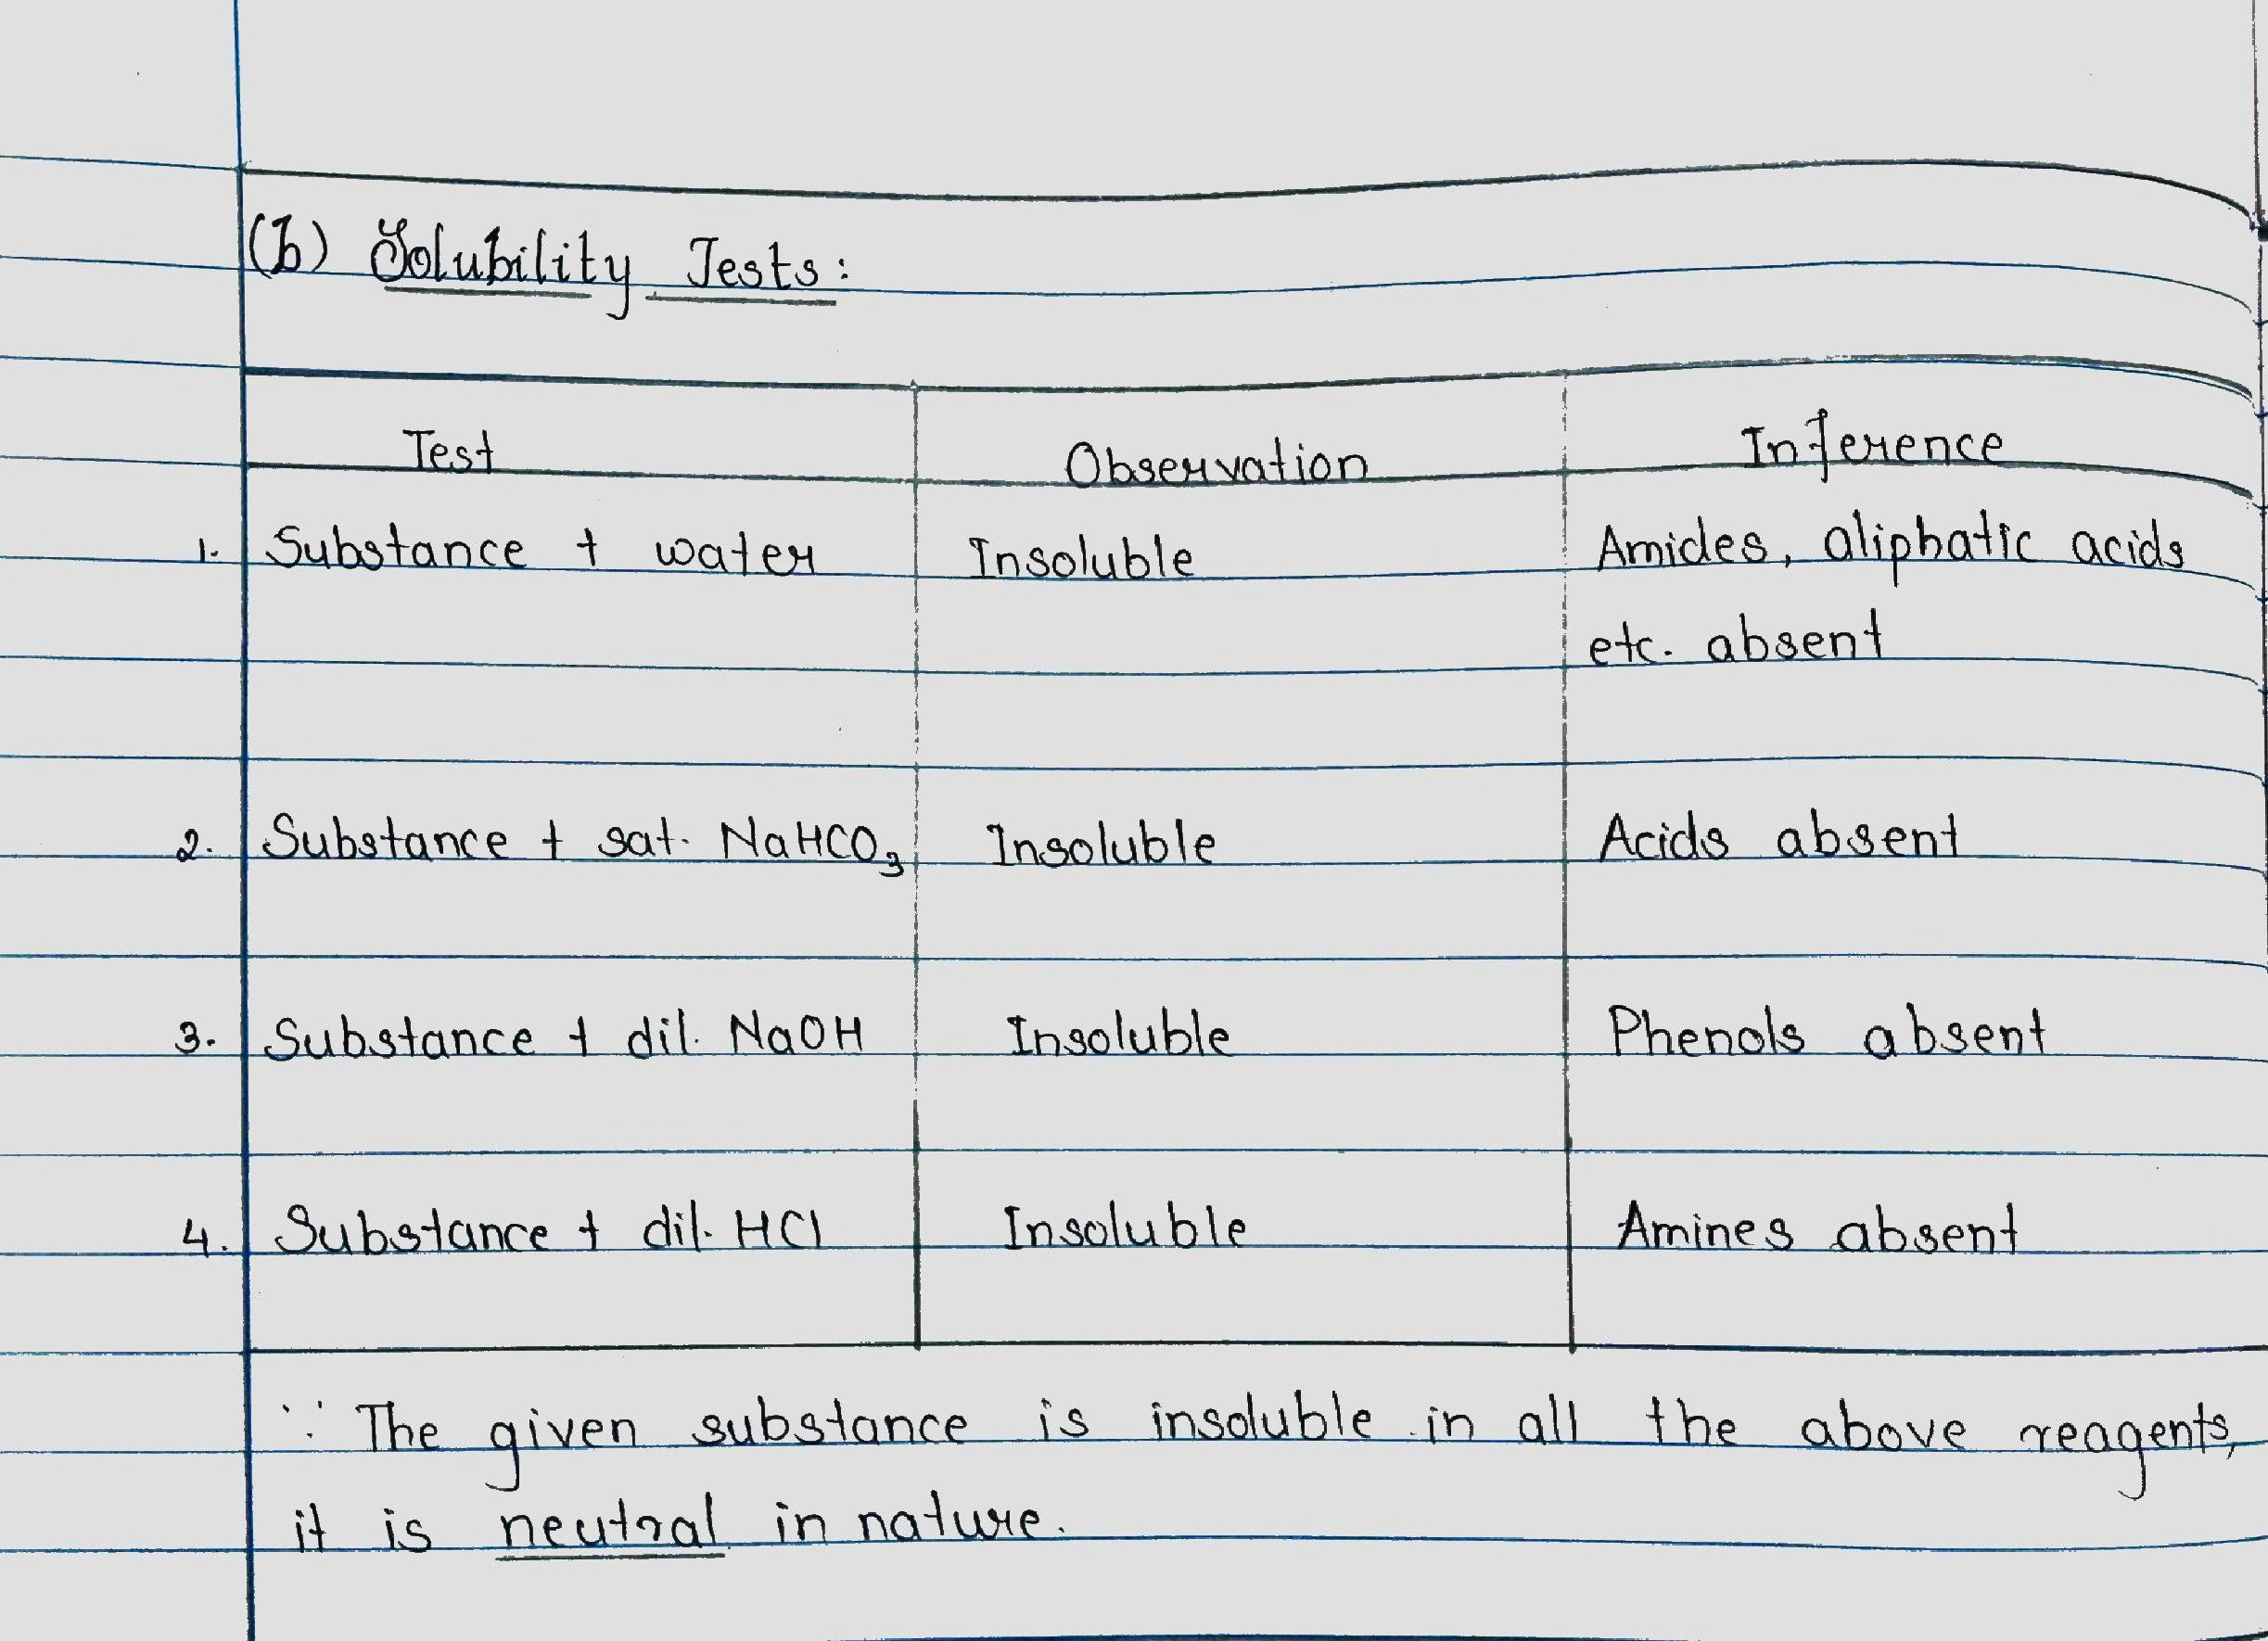 (b) Solubility Tests:
Test Observation Inference
1. Substance + water Insoluble Amides, aliphatic acids
etc. absent
2. Substance + sat. NaHCO₃ Insoluble Acids absent
3. Substance + dil. NaOH Insoluble Phenols absent
4. Substance + dil. HCl Insoluble Amines absent
∵ The given substance is insoluble in all the above reagents,
it is neutral in nature.